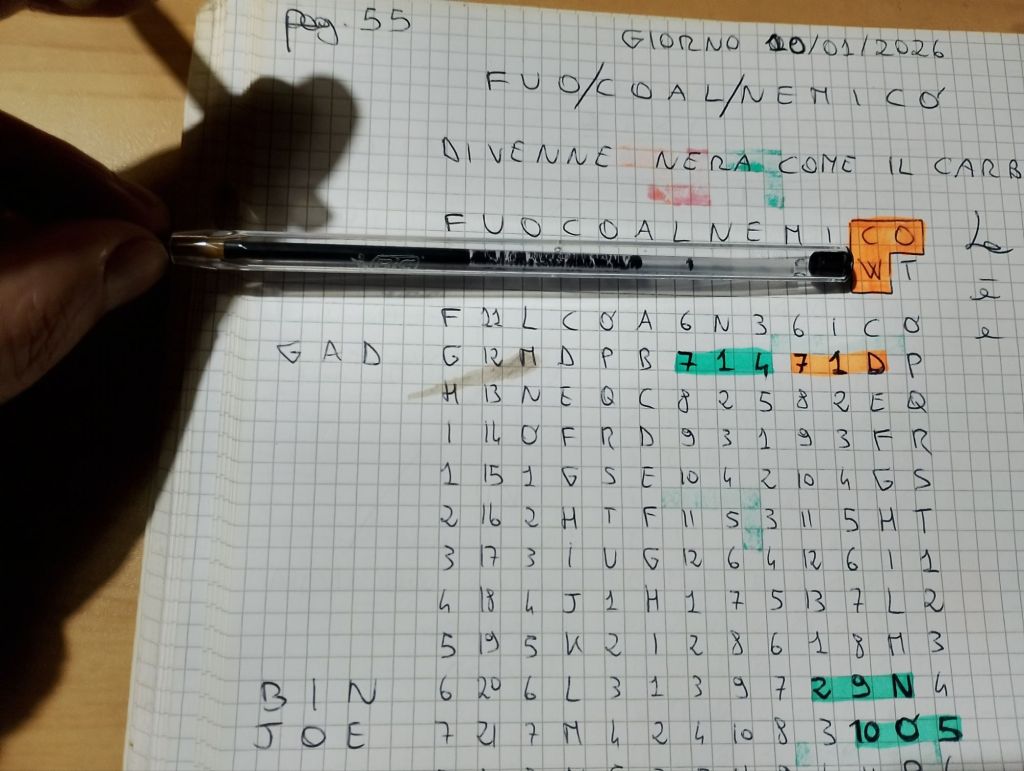 pag. 55
GIORNO 20/01/2026
FUO/COAL/NEMICO
DIVENNE NERA COME IL CARB
F U O C O A L N E M I C O
W T
F 11 L C O A 6 N 3 6 I C O
GAD G 12 M D P B 7 1 4 7 1 D P
H 13 N E Q C 8 2 5 8 2 E Q
I 14 O F R D 9 3 1 9 3 F R
1 15 1 G S E 10 4 2 10 4 G S
2 16 2 H T F 11 5 3 11 5 H T
3 17 3 I U G 12 6 4 12 6 I 1
4 18 4 J 1 H 1 7 5 13 7 L 2
5 19 5 K 2 I 2 8 6 1 8 M 3
BIN 6 20 6 L 3 1 3 9 7 2 9 N 4
JOE 7 21 7 M 4 2 4 10 8 3 10 O 5